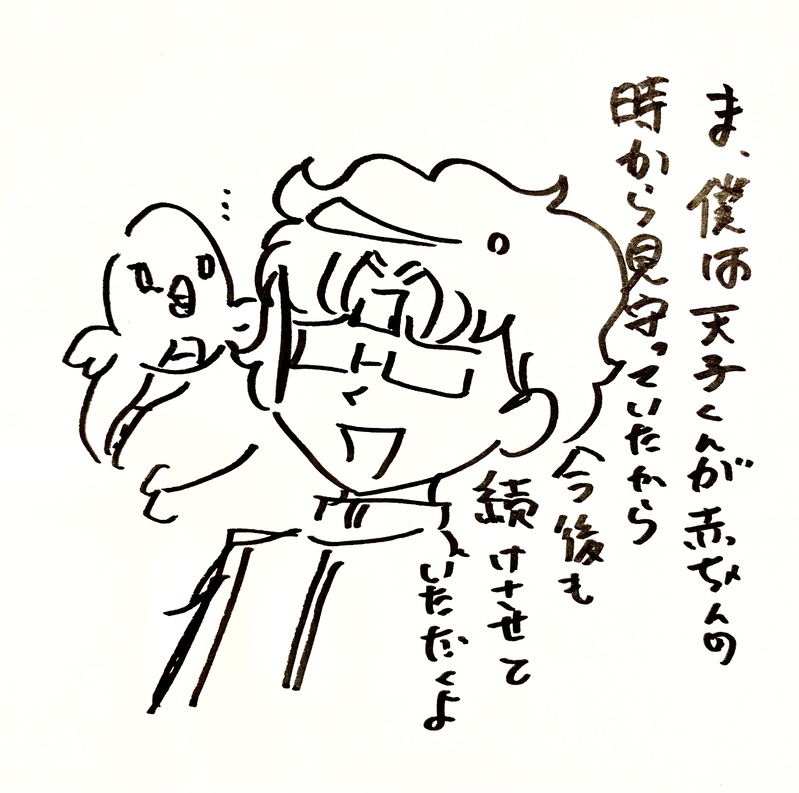 ま、僕は天子くんが赤ちゃんの
時から見守っていたから
今後も
続けさせて
いただくよ